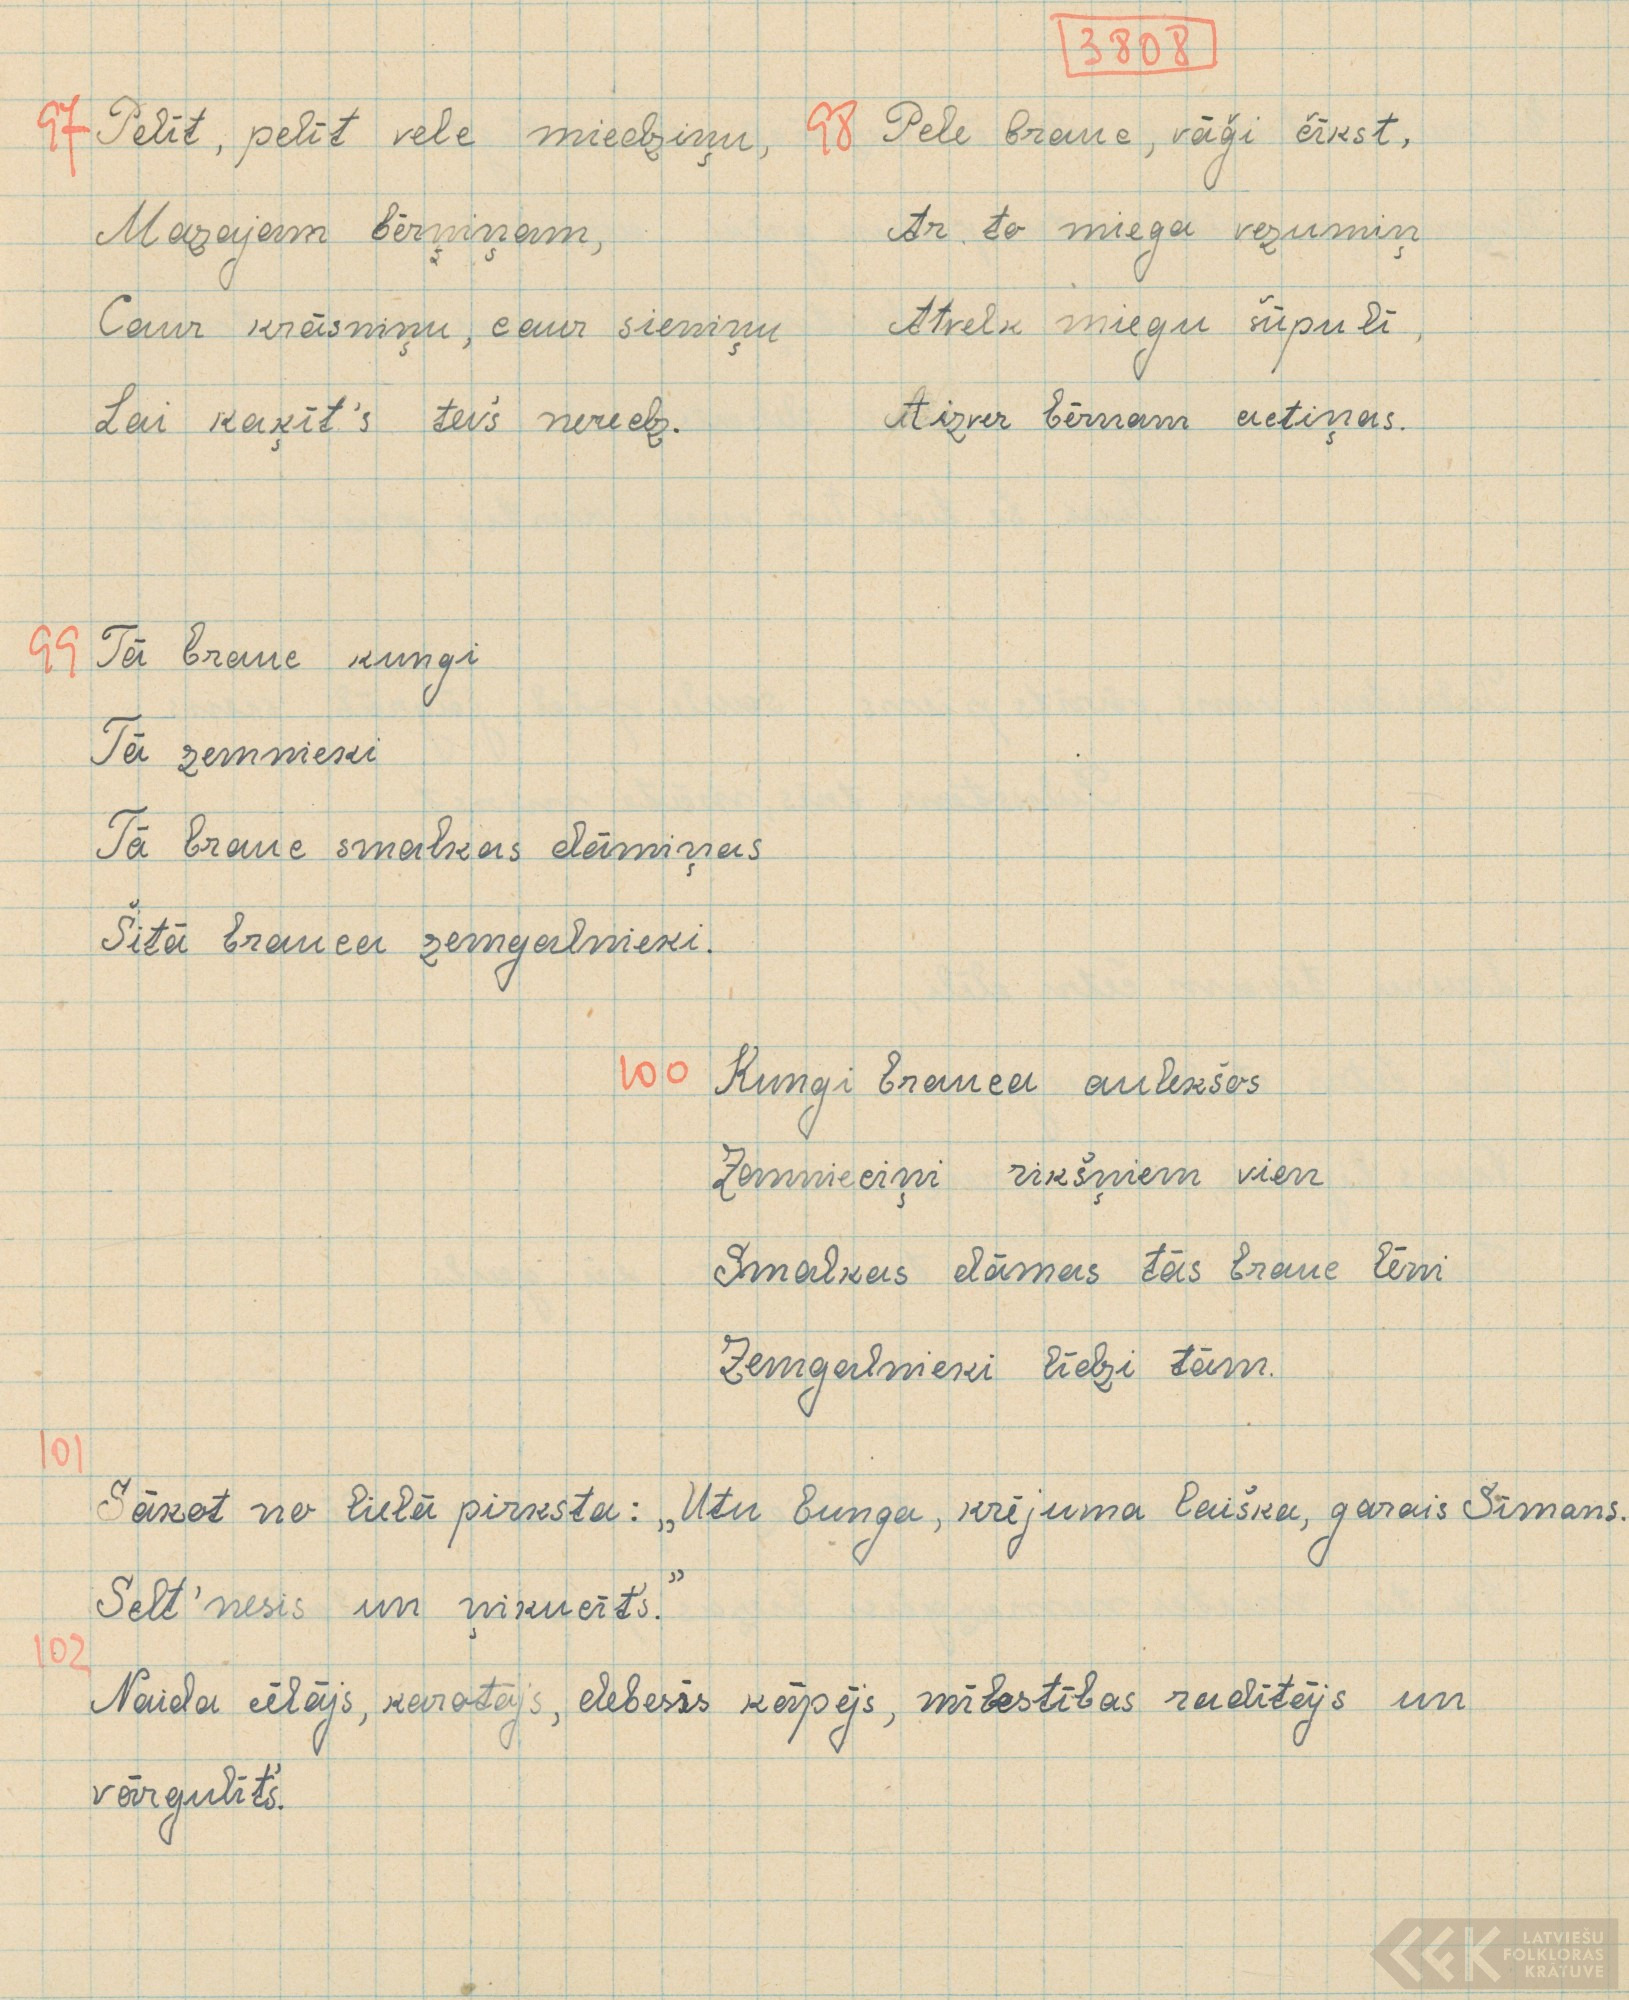 3808
97 Pelīt, pelīt vele miedziņu,
Mazajam bērņiņam,
Caur krāsniņu, caur sieniņu
Lai kaķīt's tev's neredz.
98 Pele brauc, vāģi čīkst,
Ar to miega vezumiņ
Atvelk miegu šūpulī,
Aizver bērnam actiņas.
99 Tā brauc kungi
Tā zemnieki
Tā brauc smalkas dāmiņas
Šitā brauca zemgalnieki.
100 Kungi brauca aulekšos
Zemnieciņi rikšņiem vien
Smalkas dāmas tās brauc lēni
Zemgalnieki līdzi tām.
101
Sākot no lielā pirksta: „Utu bunga, krējuma laiška, garais Sīmans.
Selt'nesis un ņikucīt's."
102
Naida cēlājs, karotājs, debesīs kāpējs, mīlestības radītājs un
vārgulīt's.
LATVIEŠU
FOLKLORAS
KRĀTUVE